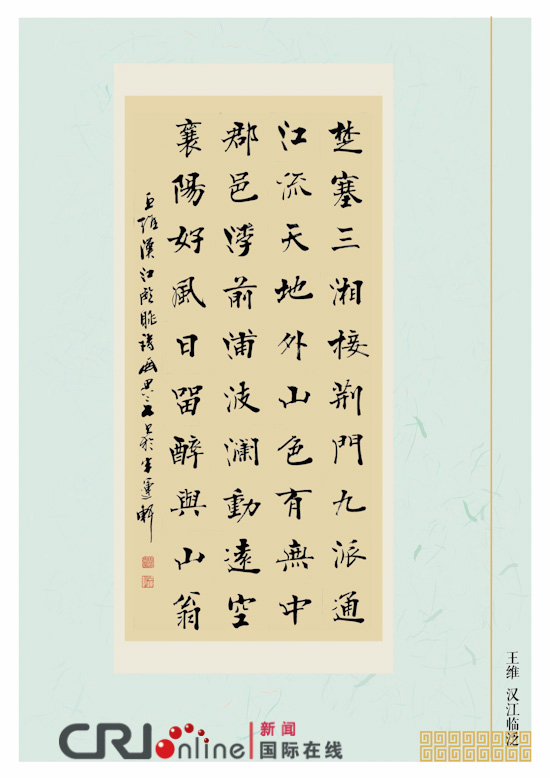 楚塞三湘接荊門九派通
江流天地外山色有無中
郡邑浮前浦波瀾動遠空
襄陽好風日留醉與山翁
王維漢江臨眺詩
王维 汉江临泛
CRIonline 新闻
国际在线